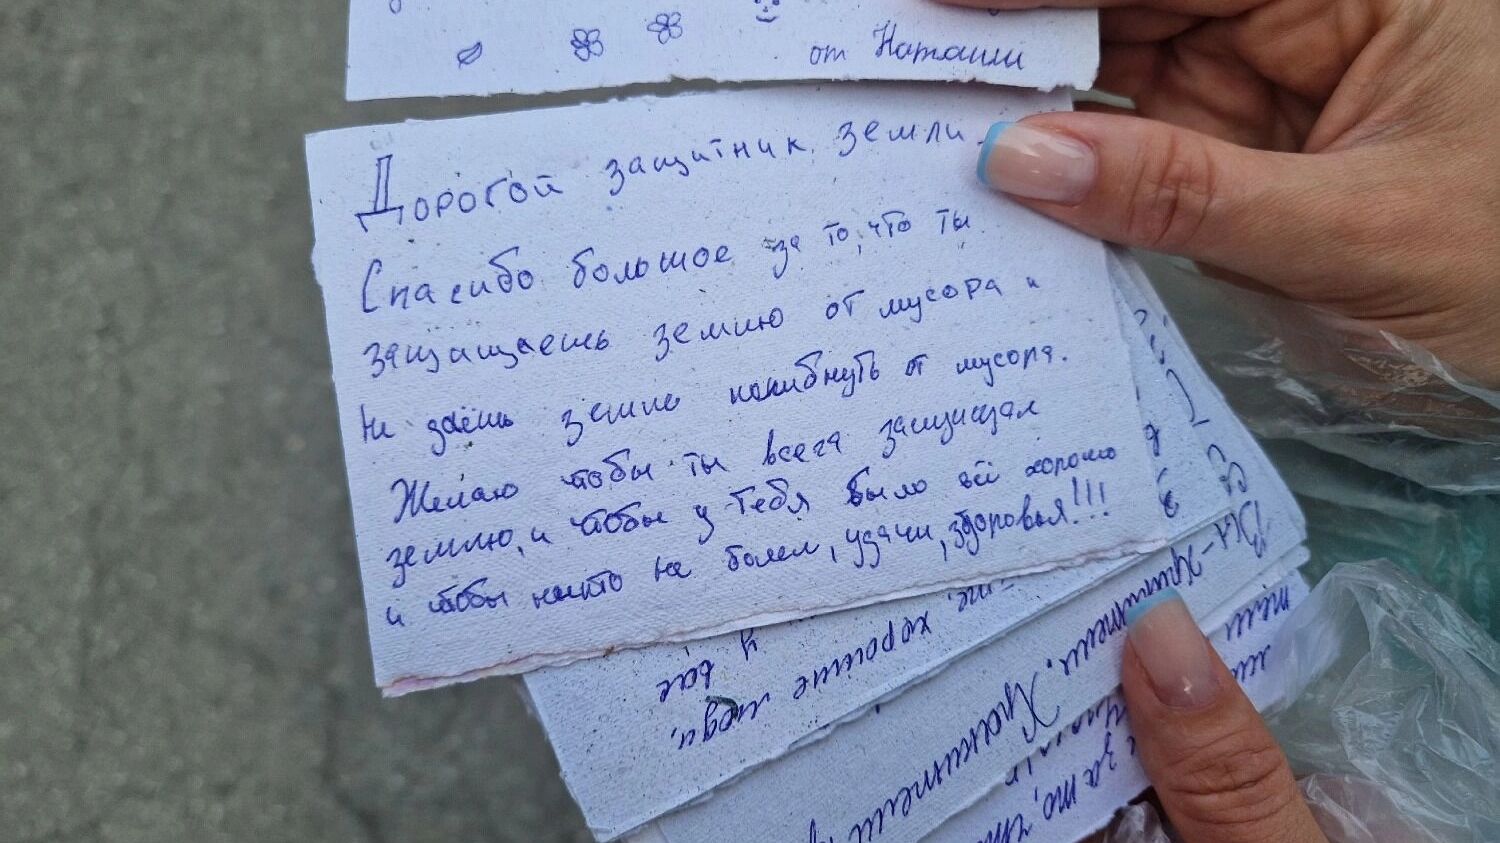 от Наташи
Дорогой защитник земли.
Спасибо большое за то, что ты
защищаешь землю от мусора и
Не даёшь земле погибнуть от мусора.
Желаю чтобы ты всега защищал
землю, и чтобы у тебя было всё хорошо
и чтобы никто не болел, удачи, здоровья!!!
вас
хорошие люди,
Хранители.
Хранители
за то, что